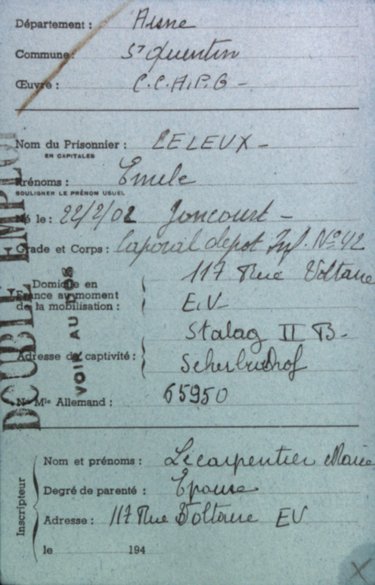 Département : Aisne
Commune : St Quentin
Œuvre : C.C.A.P.G -
Nom du Prisonnier : LELEUX -
EN CAPITALES
Prénoms : Emile
SOULIGNER LE PRÉNOM USUEL
Né le : 22/2/02 Joncourt -
Grade et Corps : Caporal depot Inf. N° 42
Domicile en France au moment de la mobilisation : 117 Rue Voltaire
E.V.
Stalag II B -
Adresse de captivité :
N° Mle Allemand : 65950
DOUBLE EMPLOI
VOIR AU DOS
Inscripteur
Nom et prénoms : Lecarpentier Marie
Degré de parenté : Epouse
Adresse : 117 Rue Voltaire EV
le 194
X